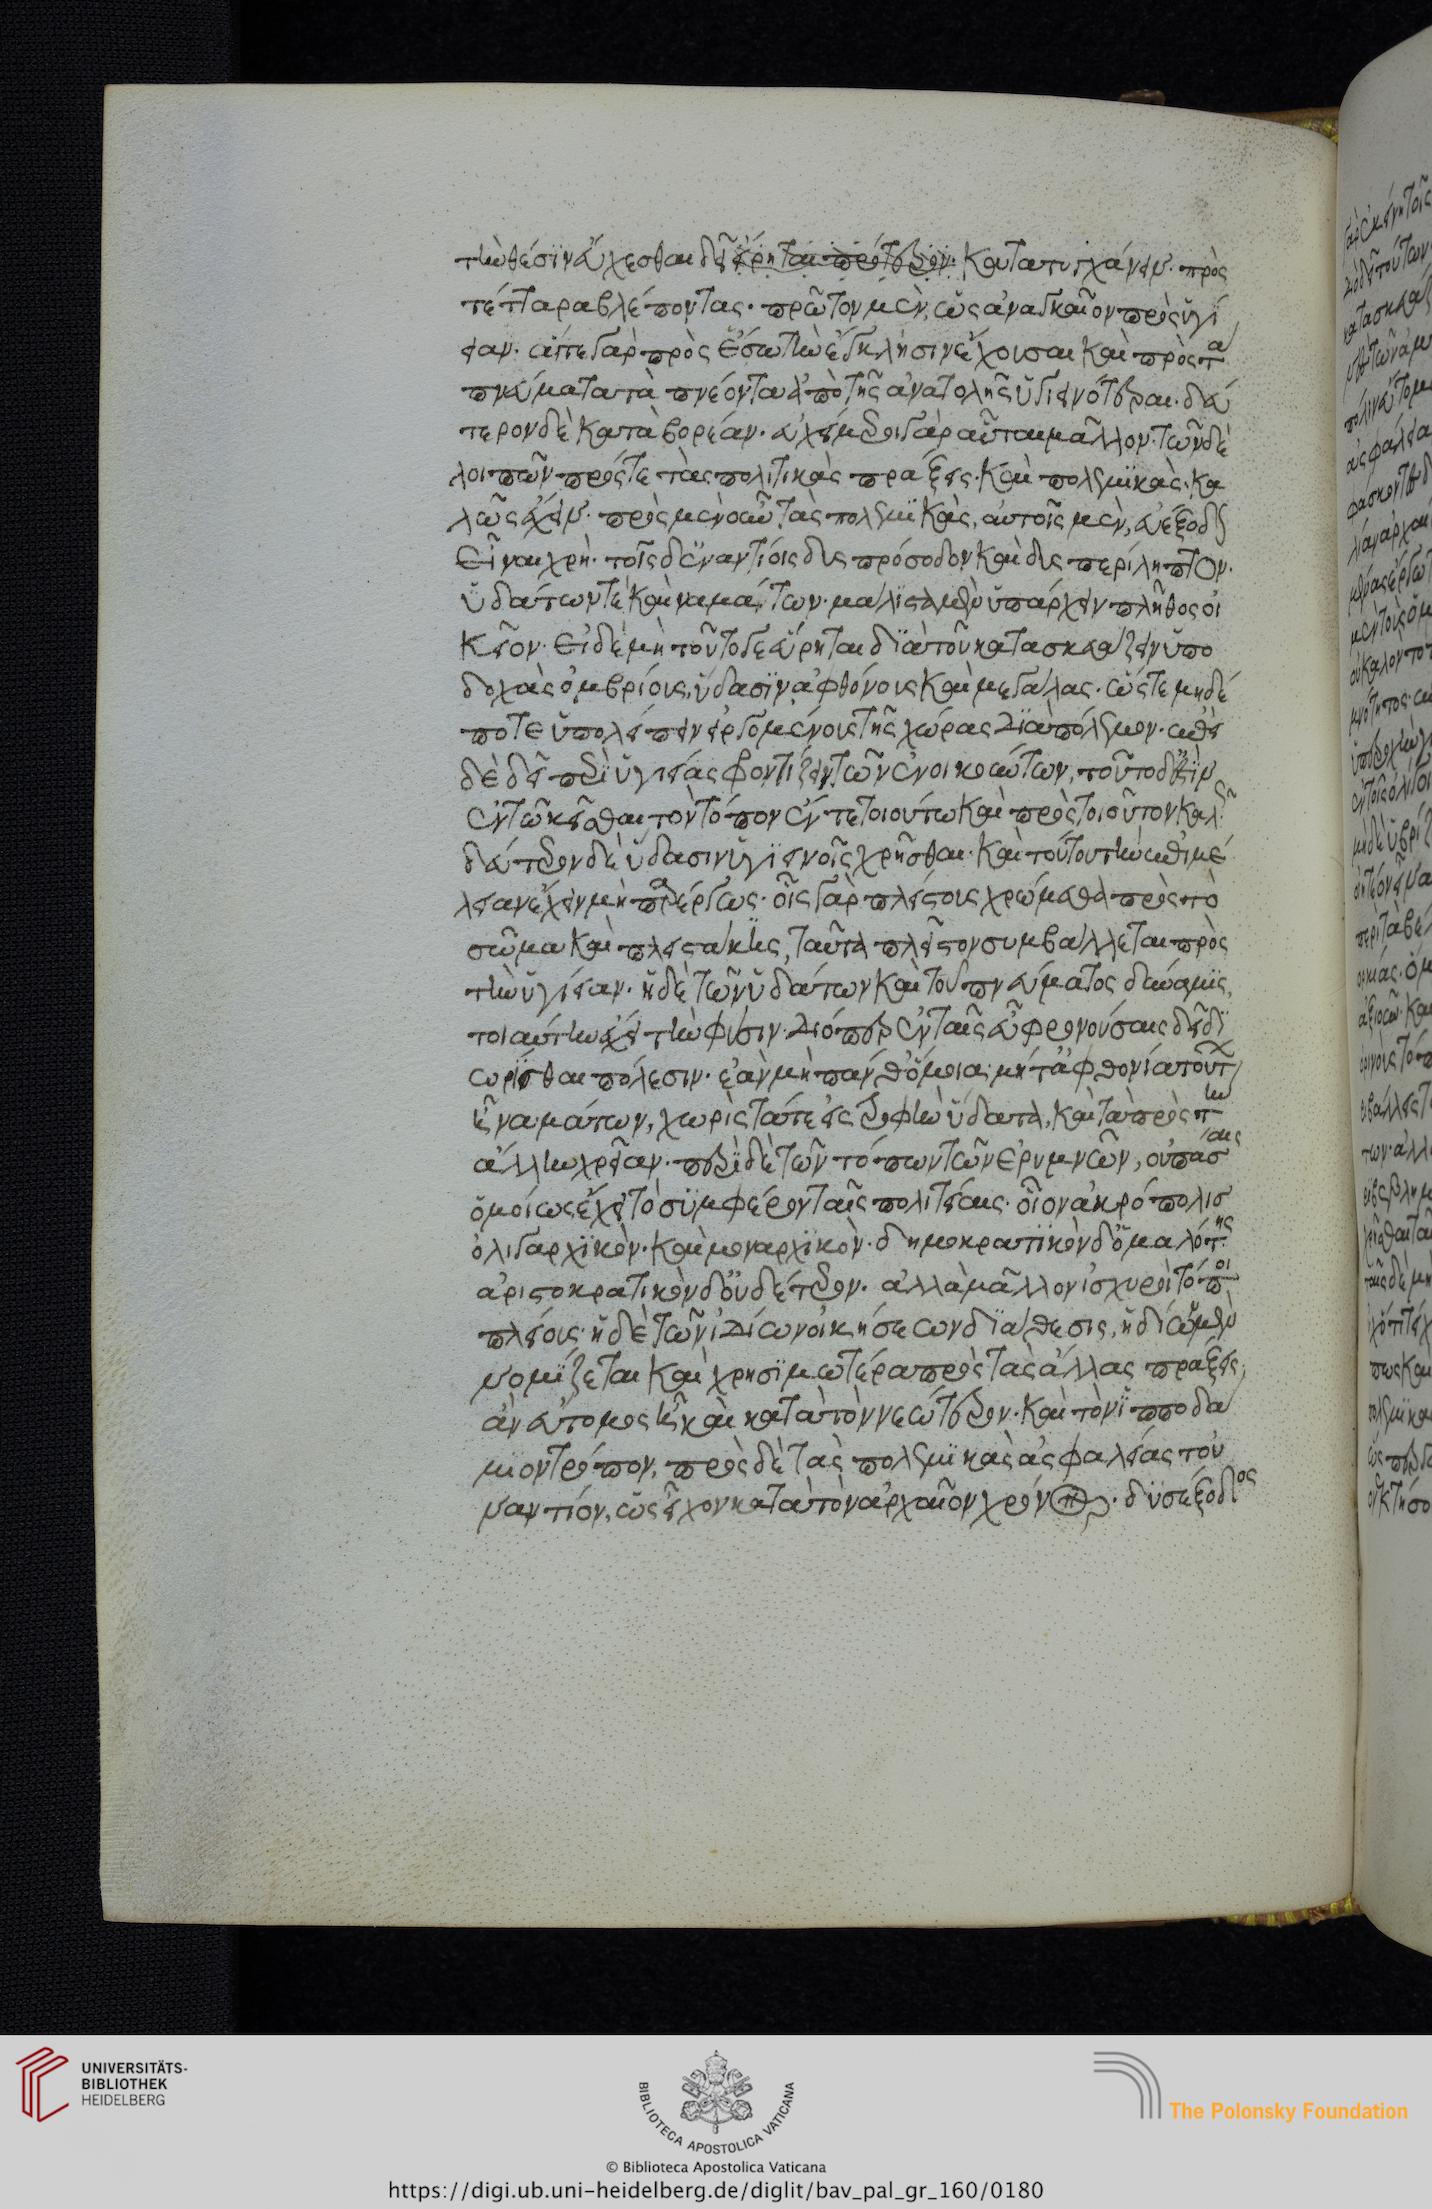 τὴν θέσιν εὔχεσθαι δεῖ εἴρηται πρότερον κατατυγχάνειν· πρὸς
τέτταρα βλέποντας· πρῶτον μὲν, ὡς ἀναγκαῖον πρὸς ὑγί
ειαν· αἵτε γὰρ πρὸς ἕω τὴν ἔγκλησιν ἔχουσαι καὶ πρὸς τὰ
πνεύματα τὰ πνέοντα ἀπὸ τῆς ἀνατολῆς ὑγιεινότεραι· δεύ
τερον δὲ κατὰ βορέαν· εὐχείμεροι γὰρ αὗται μᾶλλον· τῶν δὲ
λοιπῶν πρός τε τὰς πολιτικὰς πράξεις· καὶ πολεμικὰς· κα
λῶς ἔχειν· πρὸς μὲν οὖν τὰς πολεμικὰς, αὐτοῖς μὲν, εὐέξοδον
εἶναι χρή· τοῖς δ' ἐναντίοις δυσπρόσοδον καὶ δυσπερίληπτον·
ὑδάτων τε καὶ ναμάτων· μάλιστα μὲν ὑπάρχειν πλῆθος οἰ
κεῖον· εἰ δὲ μὴ τοῦτό γε εὕρηται διὰ τοῦ κατασκευάζειν ὑπο
δοχὰς ὀμβρίοις ὕδασιν ἀφθόνοις καὶ μεγάλας· ὥστε μηδέ
ποτε ὑπολείπειν εἰργομένοις τῆς χώρας διὰ πόλεμον· ἐπεὶ
δὲ δεῖ περὶ ὑγιείας φροντίζειν τῶν ἐνοικούντων, τοῦτο δ' ἐστὶν
ἐν τῷ κεῖσθαι τὸν τόπον ἔν τε τοιούτω καὶ πρὸς τοιοῦτον καλῶς·
δεύτερον δὲ ὕδασιν ὑγιεινοῖς χρῆσθαι· καὶ τούτου τὴν ἐπιμέ
λειαν ἔχειν μὴ παρέργως· οἷς γὰρ πλείστοις χρώμεθα πρὸς τὸ
σῶμα καὶ πλειστάκις, ταῦτα πλεῖστον συμβάλλεται πρὸς
τὴν ὑγίειαν· ἡ δὲ τῶν ὑδάτων καὶ τοῦ πνεύματος δύναμις,
τοιαύτην ἔχει τὴν φύσιν· διόπερ ἐν ταῖς εὖ φρονούσαις δεῖ δι
ωρίσθαι πόλεσιν· ἐὰν μὴ πάνθ' ὅμοια μήτ' ἀφθονία τούτων
ἦ ναμάτων, χωρὶς τά τε εἰς τροφὴν ὕδατα, καὶ τὰ πρὸς τὴν
ἄλλην χρείαν· περὶ δὲ τῶν τόπων τῶν ἐρυμνῶν, οὐ πάσαις
ὁμοίως ἔχει τὸ συμφέρον ταῖς πολιτείαις· οἷον ἀκρόπολις
ὀλιγαρχικὸν· καὶ μοναρχικὸν· δημοκρατικὸν δ' ὁμαλότης
ἀριστοκρατικὸν δ' οὐδέτερον· ἀλλὰ μᾶλλον ἰσχυροὶ τόποι
πλείους· ἡ δὲ τῶν ἰδίων οἰκήσεων διάθεσις, ἡδίων μὲν
νομίζεται καὶ χρησιμωτέρα πρὸς τὰς ἄλλας πράξεις,
ἂν εὔτομος ἦ καὶ κατὰ τὸν νεώτερον· καὶ τὸν ἱπποδά
μιον τρόπον, πρὸς δὲ τὰς πολεμικὰς ἀσφαλείας τοὐ
ναντίον, ὡς εἶχον κατὰ τὸν ἀρχαῖον χρόνον· δυσέξοδος
UNIVERSITÄTS-
BIBLIOTHEK
HEIDELBERG
BIBLIOTECA APOSTOLICA VATICANA
The Polonsky Foundation
© Biblioteca Apostolica Vaticana
https://digi.ub.uni-heidelberg.de/diglit/bav_pal_gr_160/0180